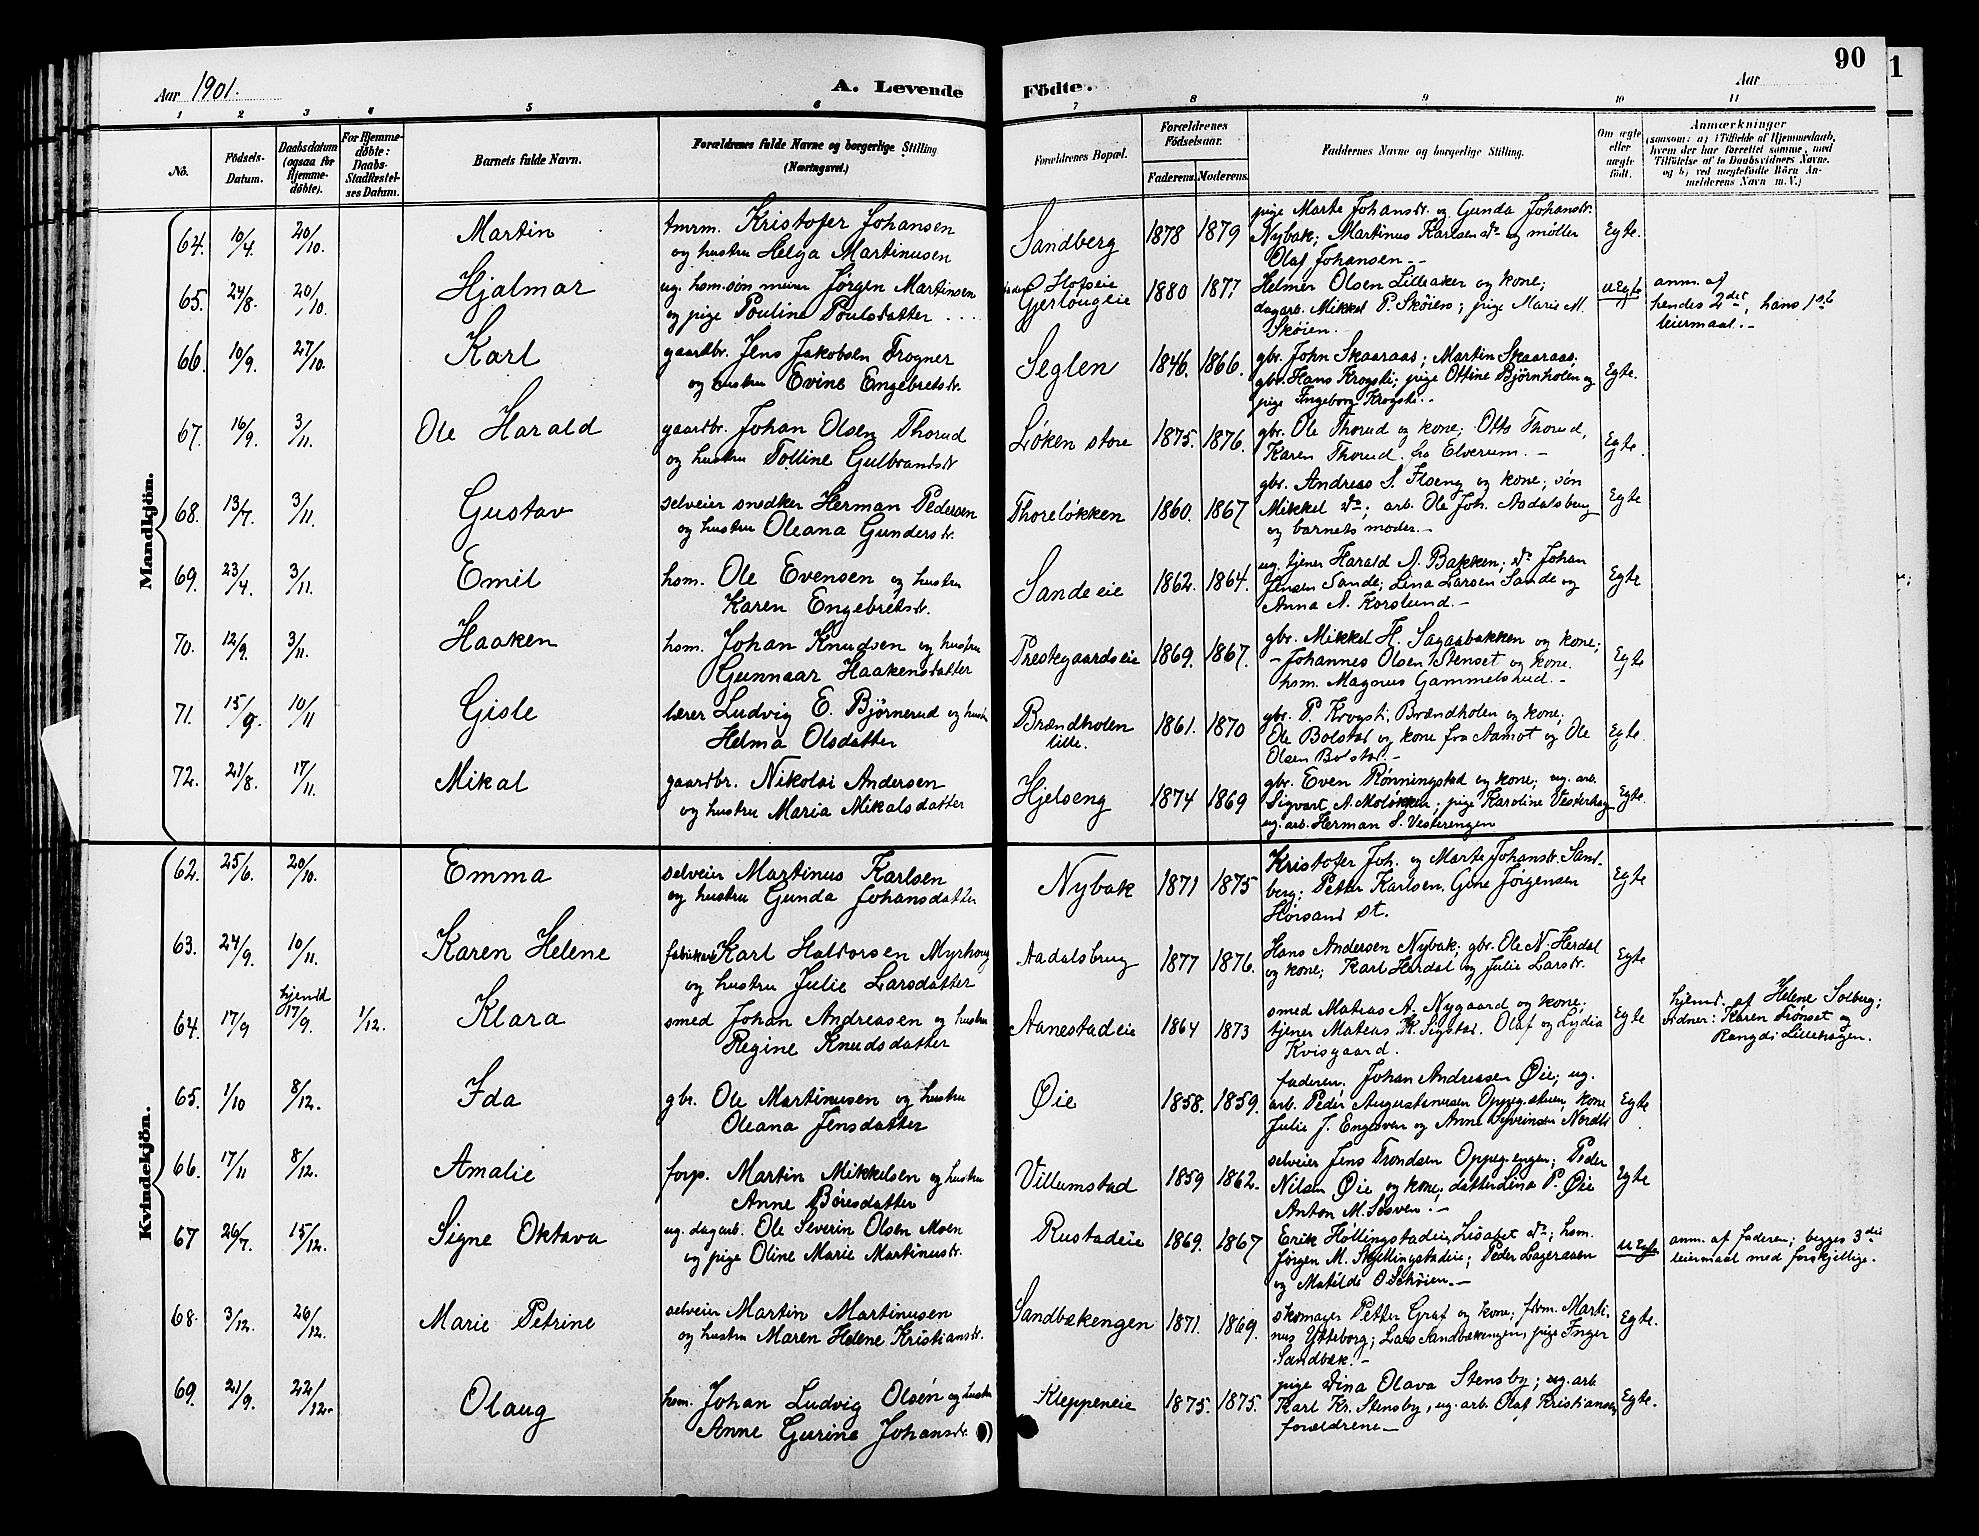 90
1
Aar 1901.
A. Levende Födte.
Aar
1 2 3 4 5 6 7 8 9 10 11
No.
Födsels-Datum.
Daabsdatum (ogsaa for Hjemme-döbte).
For Hjemme-döbte: Daabs-Stadfæstel-ses Datum.
Barnets fulde Navn.
Forældrenes fulde Navne og borgerlige Stilling (Næringsvei.)
Forældrenes Bopæl.
Forældrenes Födselsaar.
Faderens. Moderens.
Faddernes Navne og borgerlige Stilling.
Om ægte eller uægte födt.
Anmærkninger
(saasom: a) i Tilfælde af Hjemmedaab, hvem der har forrettet samme, med Tilföielse af to Daabsvidners Navne, og b) ved uægtefödte Börn An-melderens Navn m.V.)
Mandkjön.
64. 10/4. 20/10. Martin tmrm. Kristofer Johansen
og hustru Helga Martinusen
Sandberg 1878 1879
pige Marte Johansdr. og Gunda Johansdr.
Nybak; Martinus Karlsen do og møller
Olaf Johansen.-
Egte.
65. 24/8. 20/10. Hjalmar ug. hsm.søn murer Jörgen Martinsen
og pige Pouline Poulsdatter
Hofseie
Gjerlougeie
1880 1877
Helmer Olsen Lilleaker og kone;
dagarb. Mikkel P. Skøien; pige Marie M.
Skøien.
uEgte
anm. af
hendes 2det, hans 1ste
leiermaal.-
66. 10/9. 27/10. Karl gaardbr. Jens Jakobsen Trogner
og hustru Evine Engebretsdr.
Seglen 1846. 1866.
gbr. John Skaaraas; Martin Skaaraas;
gbr. Hans Krogsti; pige Ottine Björnholen og
pige Ingeborg Krogsti.-
Egte.
67. 16/9. 3/11. Ole Harald gaardbr. Johan Olsen Thorud
og hustru Tolline Gulbrandsdr
Løken store 1875. 1876.
gbr. Ole Thorud og kone; Otto Thorud,
Karen Thorud fra Elverum.-
Egte.
68. 13/7. 3/11. Gustav selveier snedker Herman Pedersen
og hustru Oleana Gundersdr.
Thoreløkken 1860. 1867
gbr. Andreas S. Floeng og kone; søn
Mikkel do; arb. Ole Joh. Aadalsbrug
og barnets moder.-
Egte
69. 23/4. 3/11. Emil hsm. Ole Evensen og hustru
Karen Engebretsdr.
Sandeeie 1862. 1864.
ug. tjener Harald N. Bakken; do Johan
Jensen Sande; Lina Larsen Sande og
Anna A. Korslund.-
Egte
70. 12/9. 3/11. Haaken hsm. Johan Knudsen og hustru
Gunnaar Haakensdatter
Prestegaardseie 1869. 1867.
gbr. Mikkel H. Sagasbakken og kone;
- Johannes Olsen Stenset og kone.
hsm. Magnus Gammelshud.-
Egte
71. 15/9. 10/11 Gisle lærer Ludvig E. Björnerud og hustru
Helma Olsdatter
Brændholen
lille.
1861. 1870
gbr. P. Krogsti, Brændholen og kone;
Ole Bolstad og kone fra Aamot og Ole
Olsen Bolstad.-
Egte.
72. 21/8. 17/11. Mikal gaardbr. Nikolai Andersen
og hustru Maria Mikalsdatter
Hjelseng 1874 1869
gbr. Even Rønningstad og kone; ug. arb.
Sigvart A. Moløkken; pige Karoline Vesterhag
ug. arb. Herman S. Vesterengen
Egte.
Kvindekjön.
62. 25/6. 20/10. Emma selveier Martinus Karlsen
og hustru Gunda Johansdatter
Nybak 1871 1875
Kristofer Joh. og Marte Johansdr. Sand-
berg; Petter Karlsen, Gine Jørgensen
Horsand st.
Egte
63. 24/9. 10/11. Karen Helene Karl Halvorsen Myrhoug
og hustru Julie Larsdatter
Aadalsbrug 1877 1876.
Hans Andersen Nybak; gbr. Ole N. Herdal
og kone; Karl Herdal og Julie Larsdr.
Egte
64. 17/9 hjemd 17/9. 1/12. Klara smed Johan Andreasen og hustru
Regine Knudsdatter
Aanestadeie 1864 1873
smed Mateas A. Nygaard og kone.
tjener Mateas K. Sigstad. Olaf og Lydia
Kvisgaard.
Egte
hjemd. af Helene Solberg;
vidner: Karen Trønset og
Rangdi Lillehagen.
65. 1/10 8/12. Ida gbr. Ole Martinusen og hustru
Oleana Jensdatter
Øie 1858. 1859.
faderen. Johan Andreasen Øie; ug.
arb. Peder Augustinusen Oppegstuen, kone
Julie J. Engsven og Anne Syverinsen Nordli
Egte
66. 17/11 8/12. Amalie forp. Martin Mikkelsen og hustru
Anne Børesdatter
Villumstad 1859 1862.
selveier Jens Trondsen Oppegengen; Peder
Nilsen Øie og kone; datter Lina P. Øie
Anton M. Sosven.-
Egte
67 26/7. 15/12. Signe Oktava ug. dagarb. Ole Severin Olsen Moen
og pige Oline Marie Martinusdr.
Rustadeie 1869. 1867
Erik Höllingstadeie, Lisabet do; hsm.
Jørgen M. Skjellingstadeie; Peder Lageraaen
og Matilde O. Skøien.-
uEgte
anm. af faderen; begges 3die
leiermaal med forskjellige.
68. 3/12. 26/12. Marie Petrine selveier Martin Martinusen
og hustru Maren Helene Kristiansdr.
Sandbækengen 1871. 1869.
skomager Petter Graf og kone; fhv. Marti-
nus Ytteborg; Lars Sandbækengen, pige Inger
Sandbæk.-
Egte.
69. 21/9. 22/12. Olaug hsm. Johan Ludvig Olsen og hustru
Anne Gurine Johansdr.
Kleppeneie 1875. 1875.
pige Dina Olava Stensby; ug. arb.
Karl Kr. Stensby, ug. arb. Olaf Kristiansen,
forældrene-
Egte.